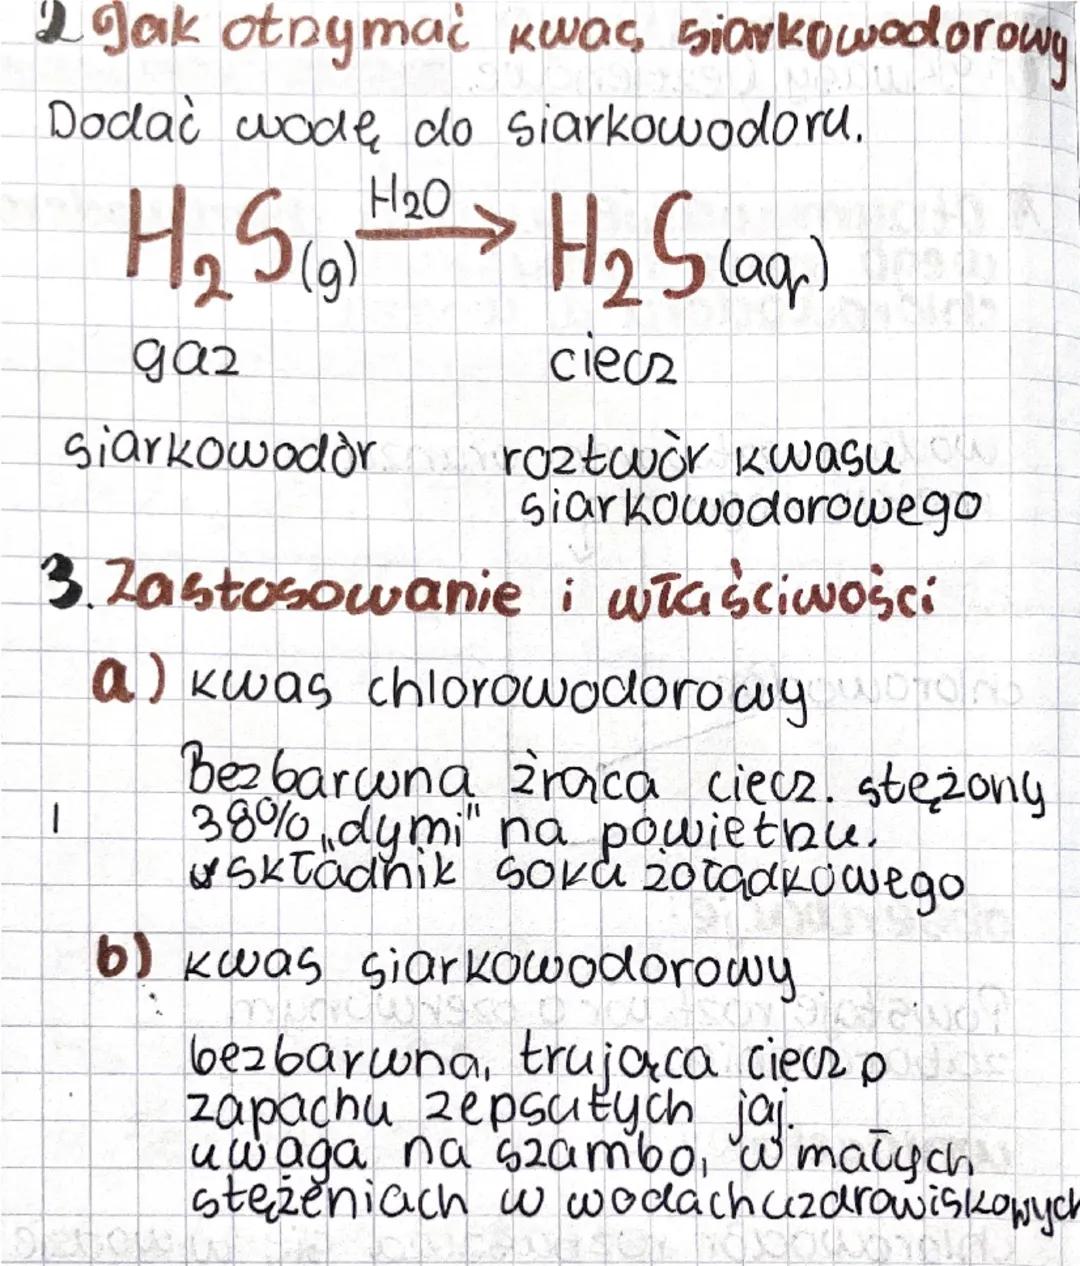 2 Jak otrzymać kwas siarkowodorowy
Dodać wodę do siarkowodoru.
H₂S(g) H₂O → H₂S(aq)
gaz ciecz
siarkowodór roztwór kwasu
siarkowodorowego
3. Zastosowanie i właściwości
a) kwas chlorowodorowy
Bezbarwna żrąca ciecz. stężony
38% „dymi" na powietrzu.
składnik soku żołądkowego
b) kwas siarkowodorowy
bezbarwna, trująca ciecz o
zapachu zepsutych jaj.
uwaga na szambo, w małych
stężeniach w wodach uzdrowiskowych